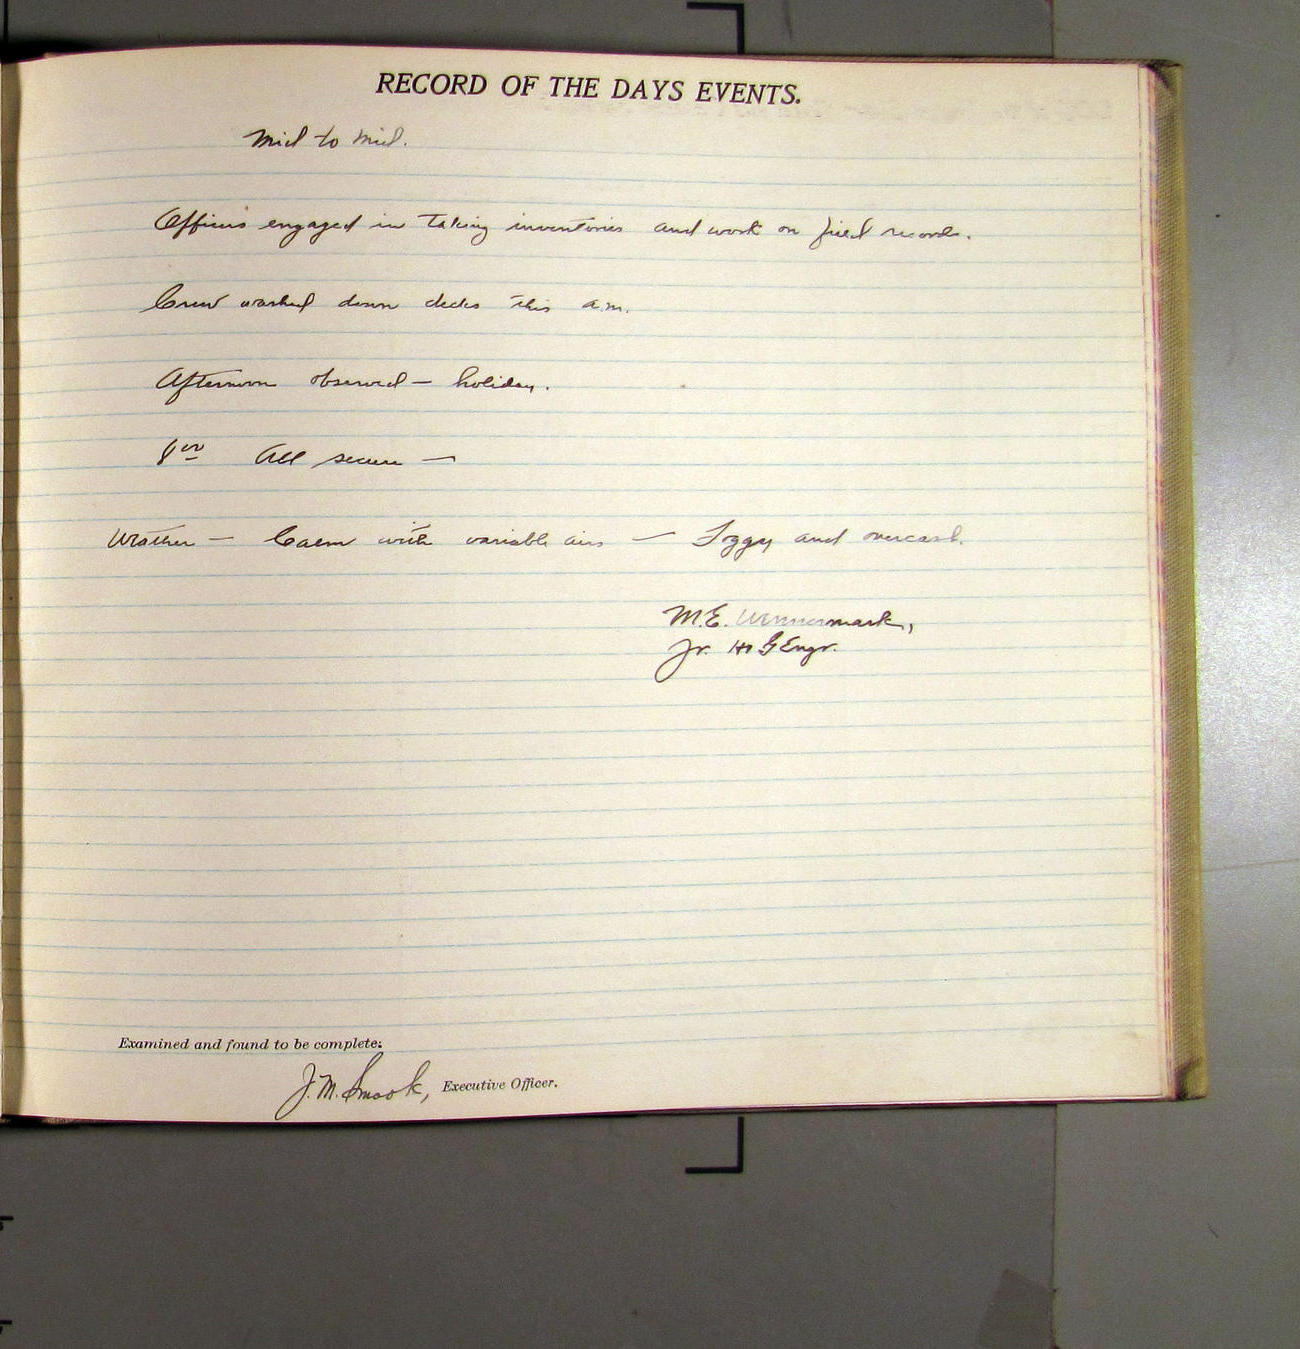 RECORD OF THE DAYS EVENTS.
Mid to Mid.
Officers engaged in taking inventories and work on field records.
Crew washed down decks this a.m.
Afternoon observed — holiday.
8⁰⁰ All secure —
Weather — Calm with variable airs — Foggy and overcast.
M.E. Wennermark,
Jr. H & G Engr.
Examined and found to be complete:
J. M. Smook, Executive Officer.